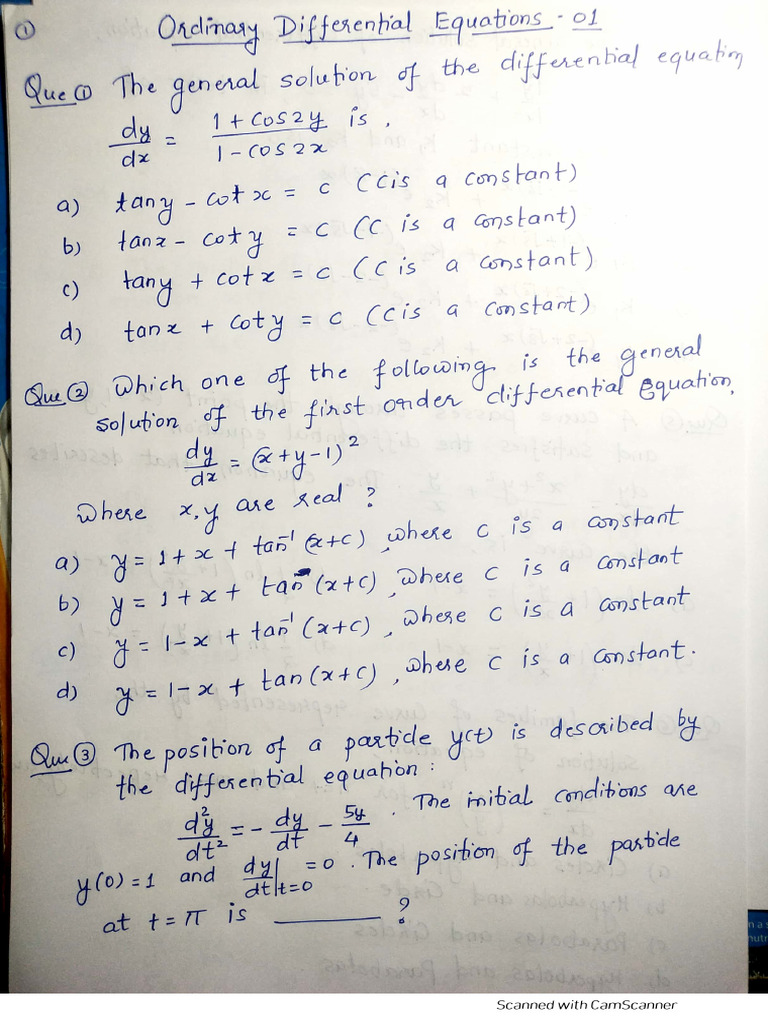 ①
Ordinary Differential Equations - 01
Que ① The general solution of the differential equation
dy/dx = (1 + cos2y)/(1 - cos2x) is,
a) tany - cotx = c (c is a constant)
b) tanx - coty = c (c is a constant)
c) tany + cotx = c (c is a constant)
d) tanx + coty = c (c is a constant)
Que ② Which one of the following is the general
solution of the first order differential Equation,
dy/dx = (x+y-1)²
where x,y are real ?
a) y = 1 + x + tan⁻¹ (x+c), where c is a constant
b) y = 1 + x + tan (x+c), where c is a constant
c) y = 1 - x + tan⁻¹ (x+c), where c is a constant
d) y = 1 - x + tan (x+c), where c is a constant.
Que ③ The position of a particle y(t) is described by
the differential equation :
d²y/dt² = - dy/dt - 5y/4 . The initial conditions are
y(0) = 1 and dy/dt|t=0 = 0 . The position of the particle
at t = π is ________ ?
Scanned with CamScanner